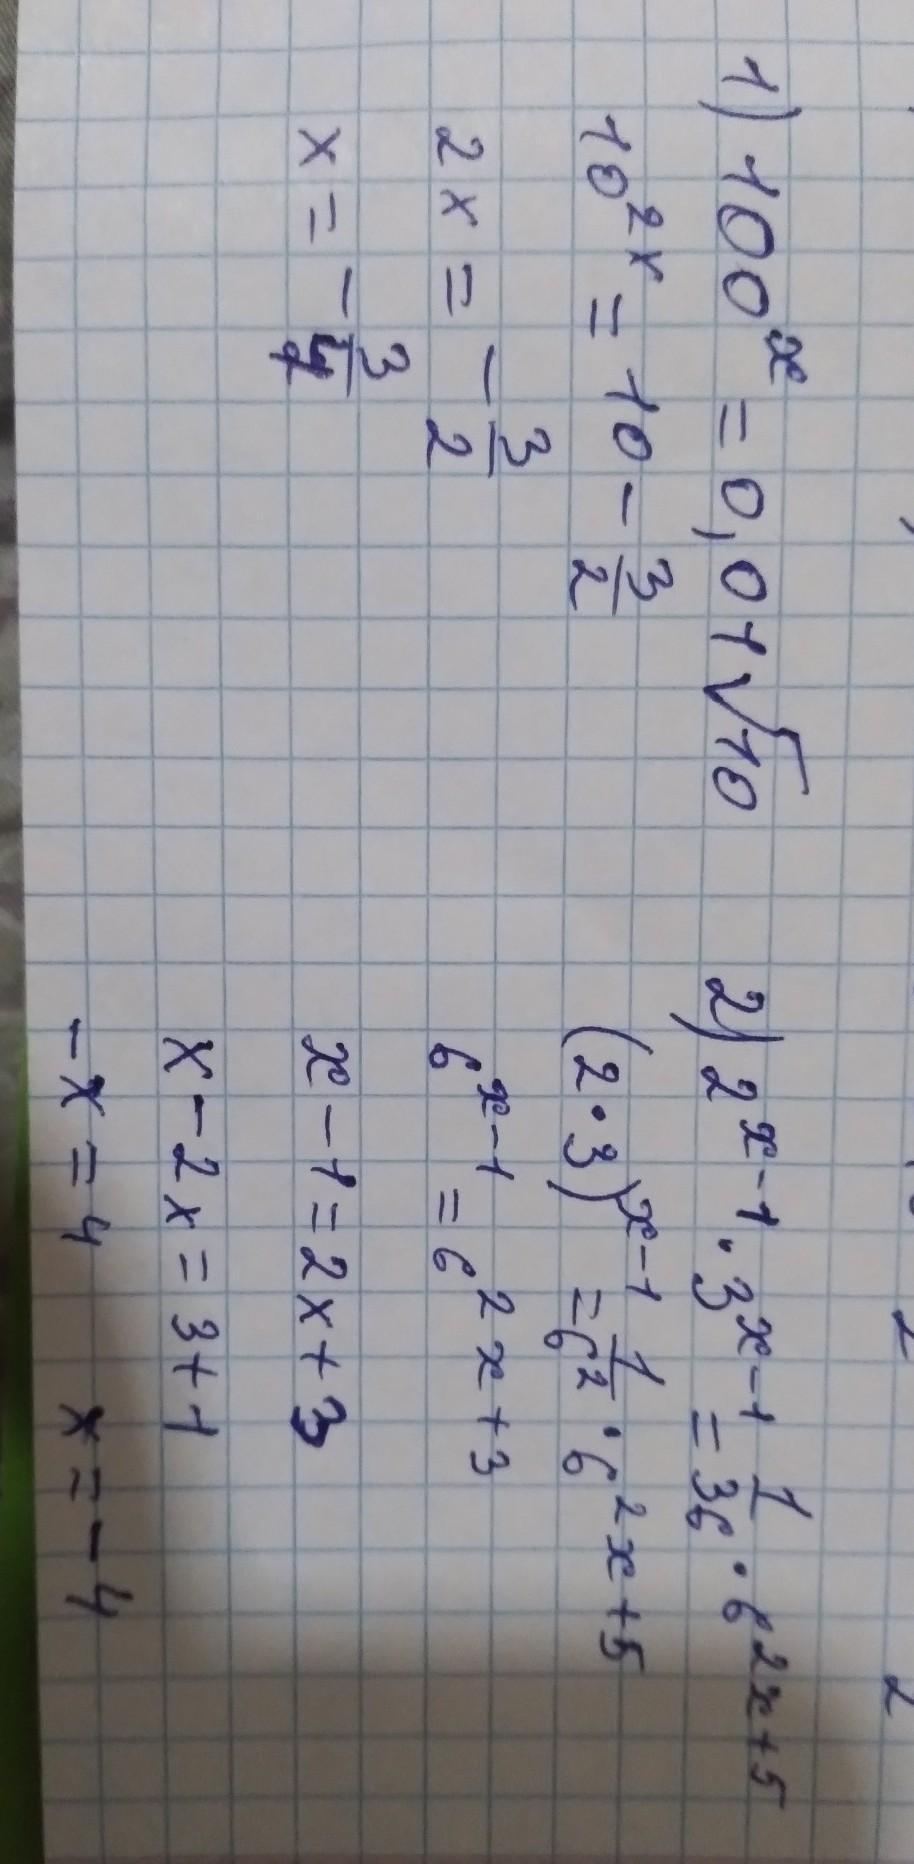 1) 100^x = 0,01√10
10^{2x} = 10^{-3/2}
2x = -3/2
x = -3/4
2) 2^{x-1} · 3^{x-1} = 1/36 · 6^{2x+5}
(2·3)^{x-1} = 1/6^2 · 6^{2x+5}
6^{x-1} = 6^{2x+3}
x-1 = 2x+3
x-2x = 3+1
-x = 4 x = -4